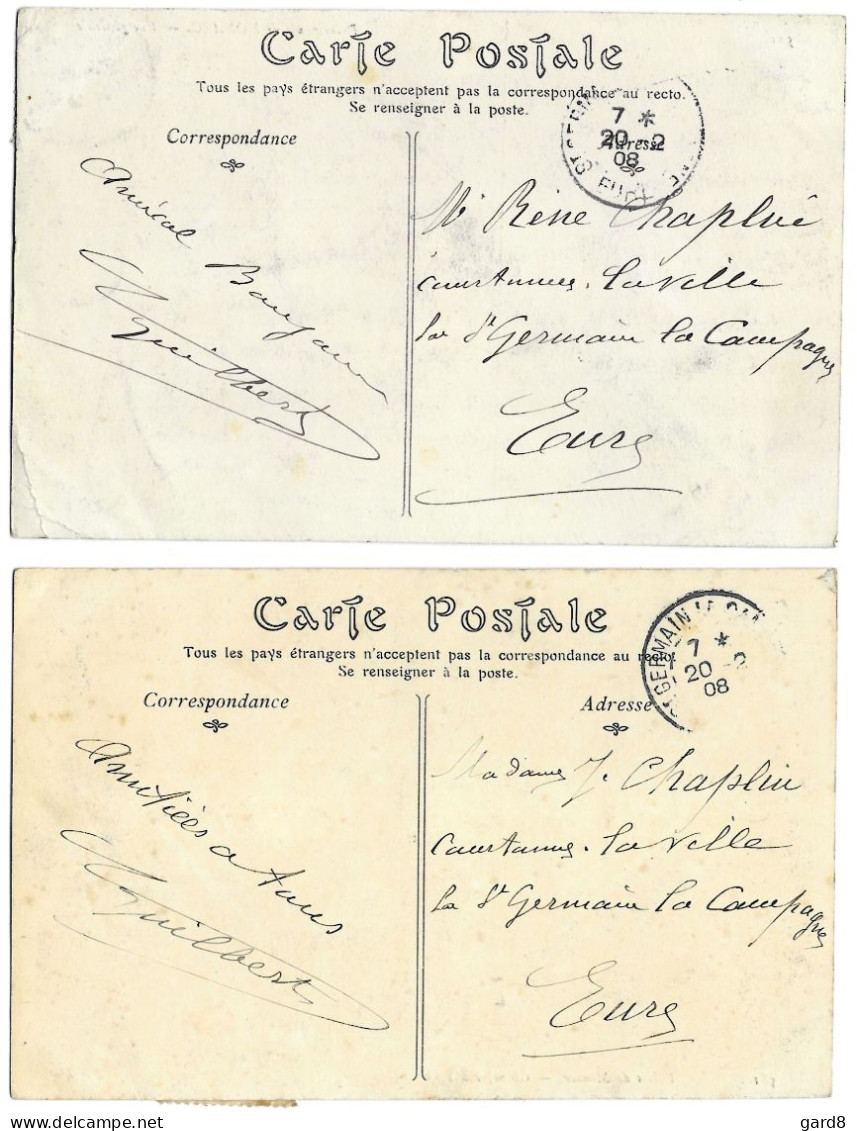 Carte Postale
Tous les pays étrangers n'acceptent pas la correspondance au recto.
Se renseigner à la poste.
Correspondance
Adresse
7 *
20 -2
08
EURE
Amical Bonjour
Guilbert
Mr Réne Chaplin
la Ville
St Germain la Campagne
Eure
Carte Postale
Tous les pays étrangers n'acceptent pas la correspondance au recto.
Se renseigner à la poste.
Correspondance
Adresse
ST GERMAIN LA CA
7 *
20 -2
08
Amitiées a tous
Guilbert
Madame J. Chaplin
la Ville
St Germain la Campagne
Eure
gard8